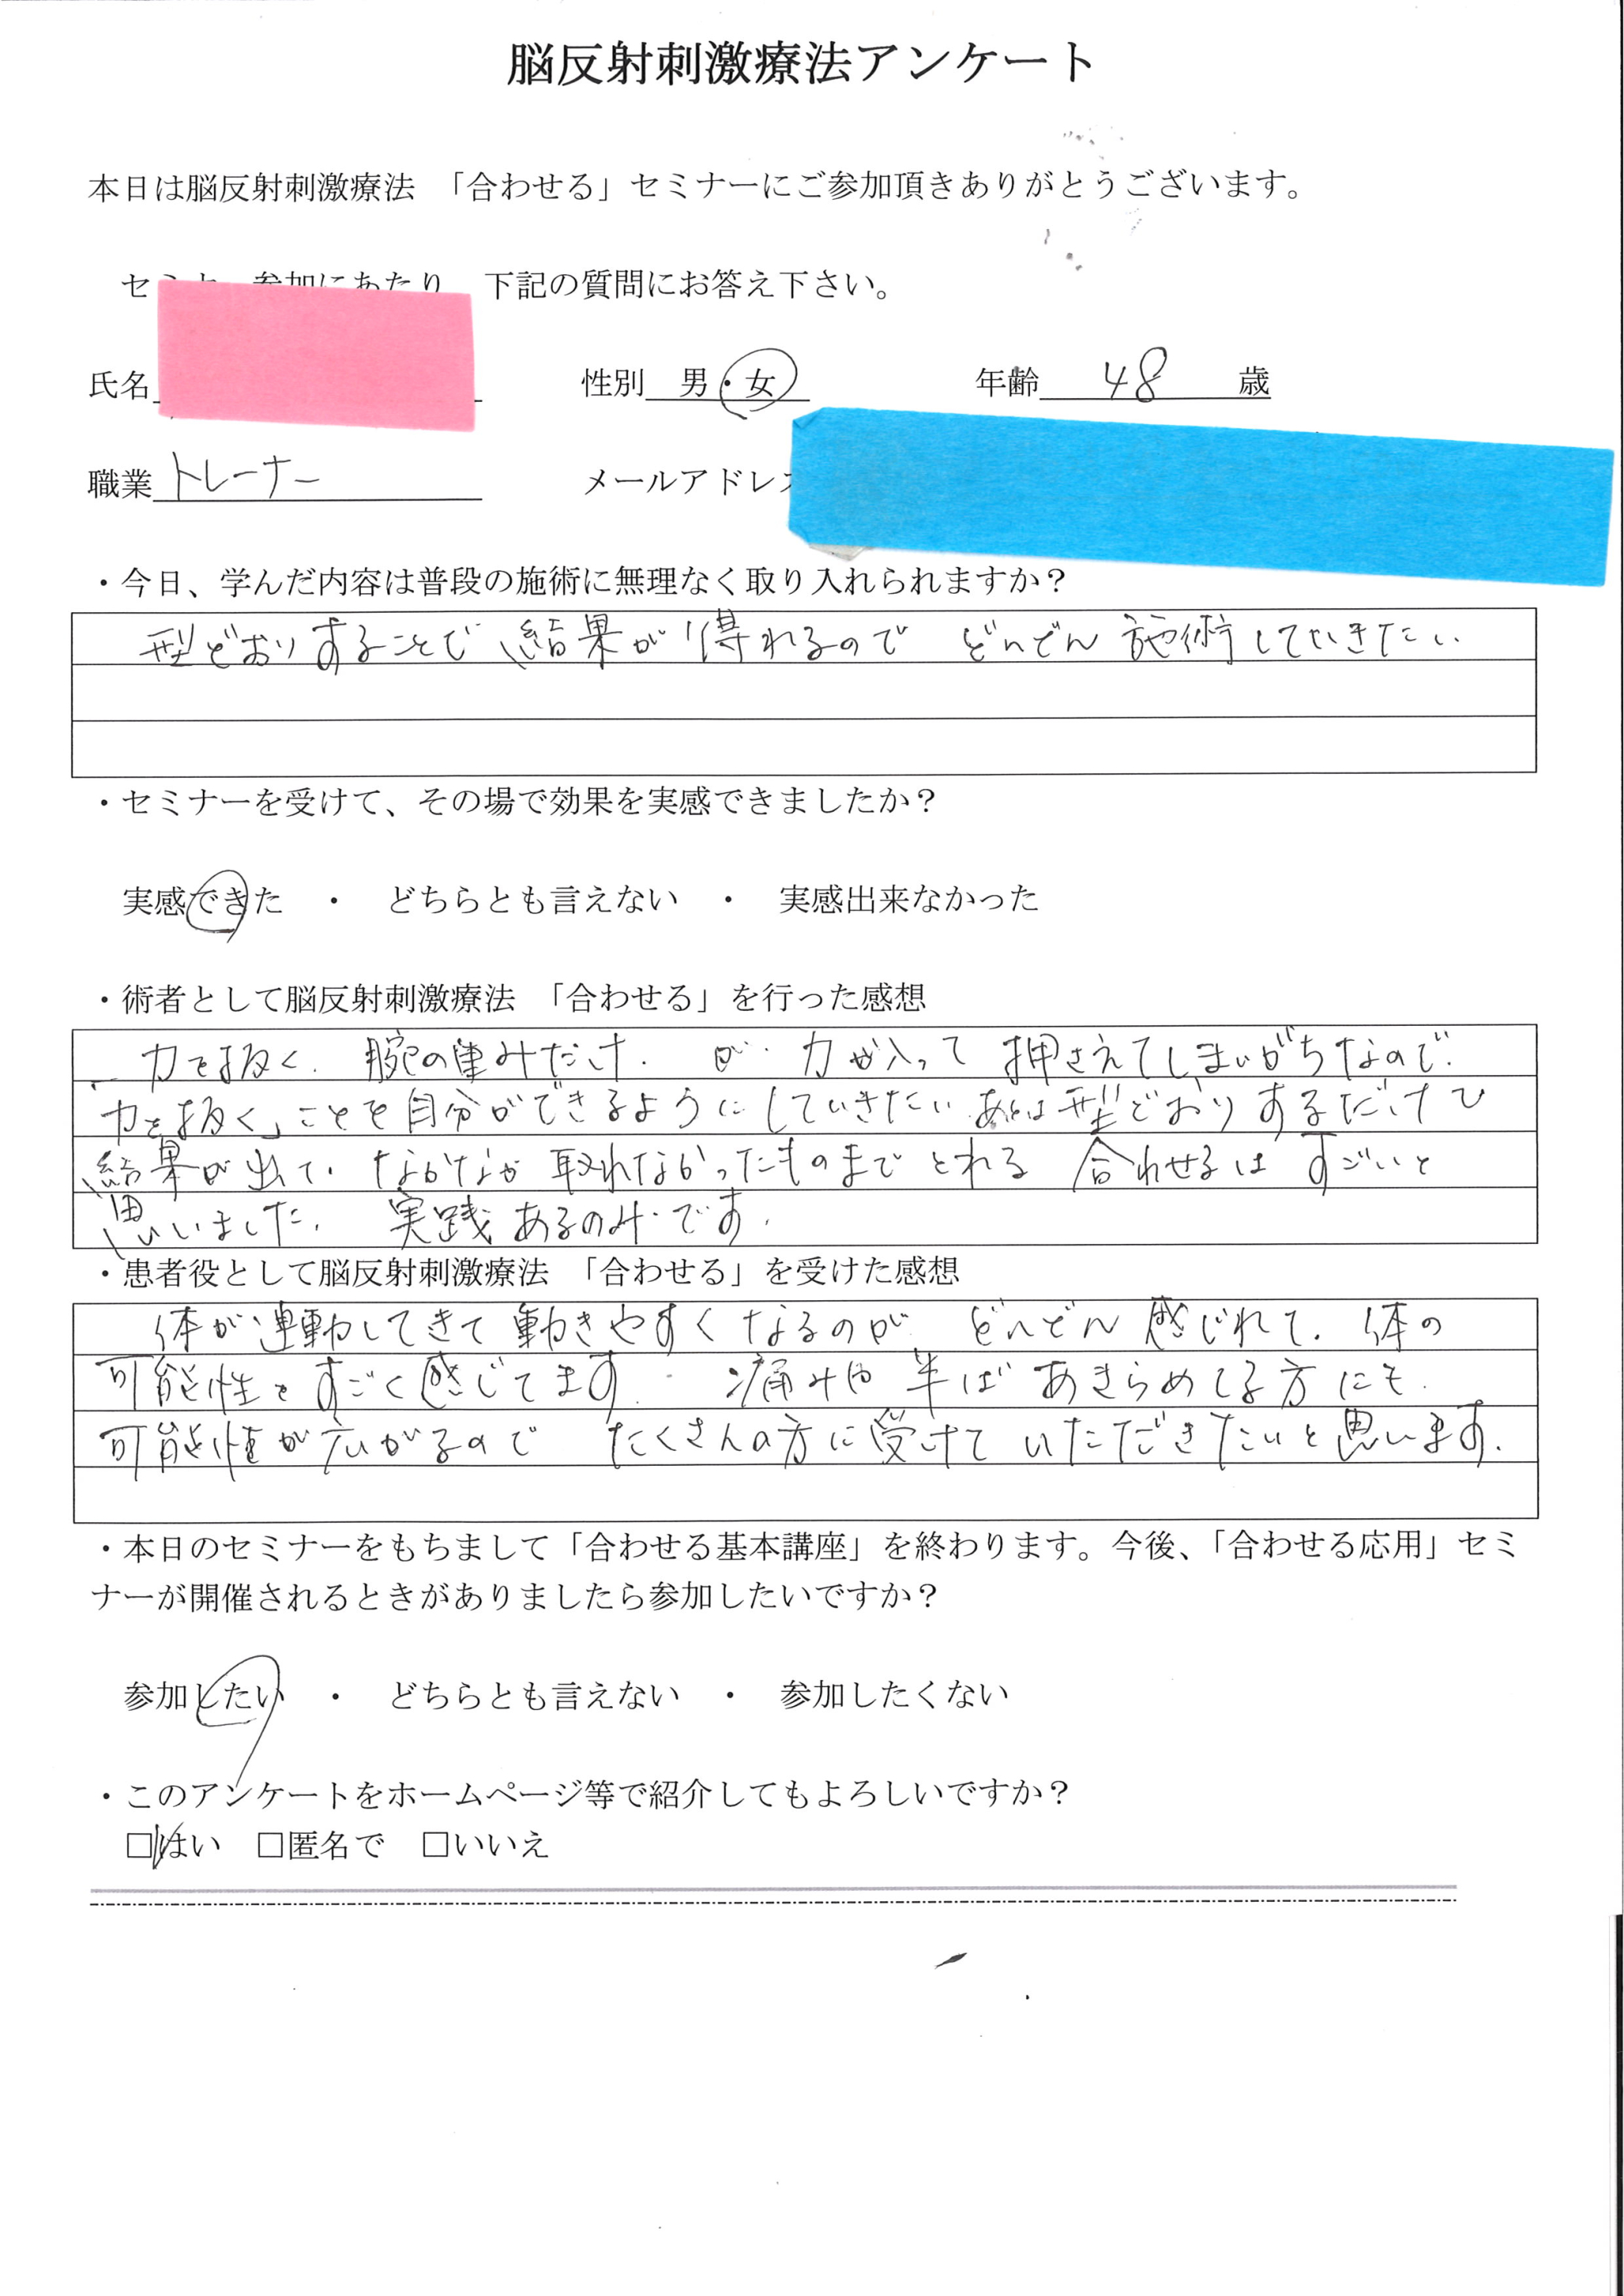 脳反射刺激療法アンケート
本日は脳反射刺激療法 「合わせる」セミナーにご参加頂きありがとうございます。
セミナー参加にあたり 下記の質問にお答え下さい。
氏名 性別 男・女 年齢 48 歳
職業 トレーナー メールアドレス
・今日、学んだ内容は普段の施術に無理なく取り入れられますか？
型どおりすることで 結果が得れるので どんどん施術していきたい
・セミナーを受けて、その場で効果を実感できましたか？
実感できた ・ どちらとも言えない ・ 実感出来なかった
・術者として脳反射刺激療法 「合わせる」を行った感想
力を抜く. 腕の重みだけ. が. 力が入って 押さえてしまいがちなので.
「力を抜く」ことを自分ができるようにしていきたい あとは型どおりするだけで
結果が出て. なかなか 取れなかったものまで とれる 合わせるは すごいと
思いました. 実践あるのみです.
・患者役として脳反射刺激療法 「合わせる」を受けた感想
体が連動してきて 動きやすく なるのが どんどん 感じれて. 体の
可能性を すごく感じてます. 痛みや 半ば あきらめてる方にも.
可能性が広がるので たくさんの方に受けて いただきたいと思います.
・本日のセミナーをもちまして「合わせる基本講座」を終わります。今後、「合わせる応用」セミ
ナーが開催されるときがありましたら参加したいですか？
参加したい ・ どちらとも言えない ・ 参加したくない
・このアンケートをホームページ等で紹介してもよろしいですか？
□はい □匿名で □いいえ